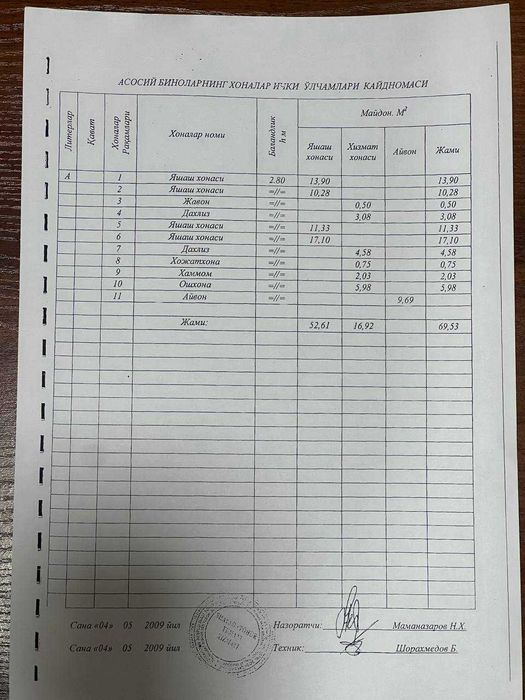 АСОСИЙ БИНОЛАРНИНГ ХОНАЛАР ИЧКИ ЎЛЧАМЛАРИ КАЙДНОМАСИ
Литерлар Қават Хоналар Рақамлари Хоналар номи Баландлик h м Майдон. М²
Яшаш хонаси Хизмат хонаси Айвон Жами
А 1 Яшаш хонаси 2.80 13,90 13,90
2 Яшаш хонаси =//= 10,28 10,28
3 Жавон =//= 0,50 0,50
4 Дахлиз =//= 3,08 3,08
5 Яшаш хонаси =//= 11,33 11,33
6 Яшаш хонаси =//= 17,10 17,10
7 Дахлиз =//= 4,58 4,58
8 Хожатхона =//= 0,75 0,75
9 Хаммом =//= 2,03 2,03
10 Ошхона =//= 5,98 5,98
11 Айвон =//= 9,69
Жами: 52,61 16,92 69,53
Сана «04» 05 2009 йил Назоратчи: Маманазаров Н.Х.
Сана «04» 05 2009 йил Техник: Шорахмедов Б.